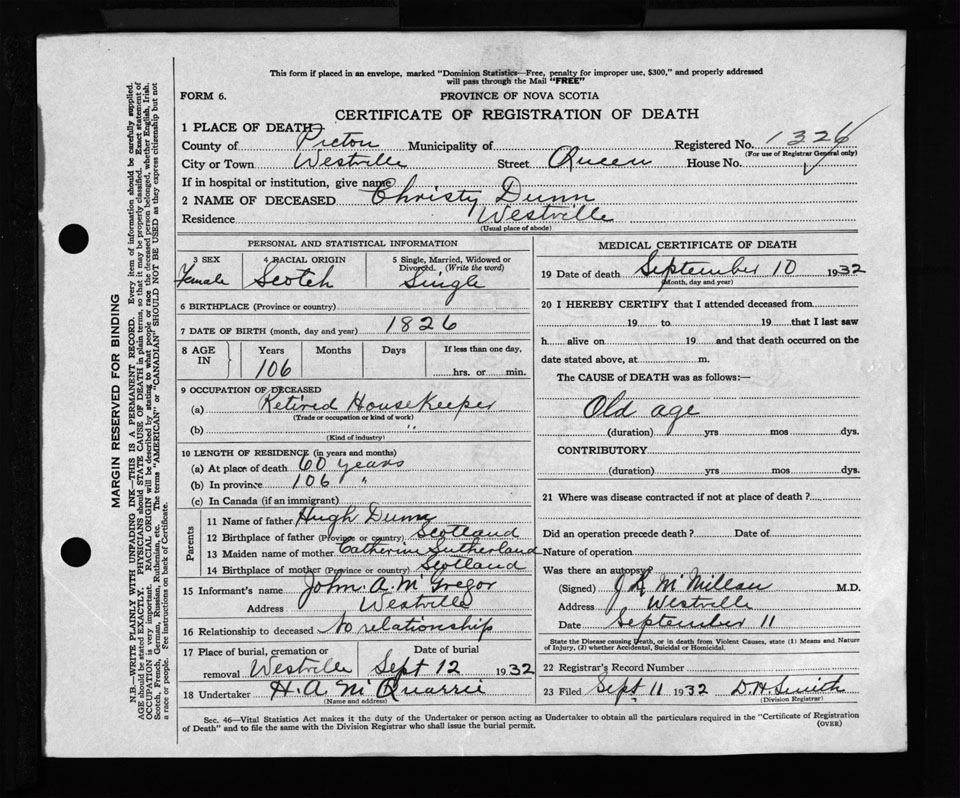 This form if placed in an envelope, marked "Dominion Statistics—Free, penalty for improper use, $300," and properly addressed
will pass through the Mail "FREE"
FORM 6.
PROVINCE OF NOVA SCOTIA
CERTIFICATE OF REGISTRATION OF DEATH
1 PLACE OF DEATH
County of Pictou Municipality of Registered No. 1326
(For use of Registrar General only)
City or Town Westville Street Queen House No.
If in hospital or institution, give name
2 NAME OF DECEASED Christy Dunn
Residence Westville
(Usual place of abode)
PERSONAL AND STATISTICAL INFORMATION
3 SEX 4 RACIAL ORIGIN 5 Single, Married, Widowed or
Divorced. (Write the word)
Female Scotch Single
6 BIRTHPLACE (Province or country)
7 DATE OF BIRTH (month, day and year) 1826
8 AGE IN Years Months Days If less than one day,
106 hrs. or min.
9 OCCUPATION OF DECEASED
(a) Retired HouseKeeper
(Trade or occupation or kind of work)
(b) "
(Kind of industry)
10 LENGTH OF RESIDENCE (in years and months)
(a) At place of death 60 years
(b) In province 106 "
(c) In Canada (if an immigrant)
Parents
11 Name of father Hugh Dunn
12 Birthplace of father (Province or country) Scotland
13 Maiden name of mother Catherine Sutherland
14 Birthplace of mother (Province or country) Scotland
15 Informant's name John A. McGregor
Address Westville
16 Relationship to deceased No relationship
17 Place of burial, cremation or Date of burial
removal Westville Sept 12 1932
18 Undertaker H. A. McQuarrie
(Name and address)
MEDICAL CERTIFICATE OF DEATH
19 Date of death September 10 1932
(Month, day and year)
20 I HEREBY CERTIFY that I attended deceased from
19 to 19 that I last saw
h alive on 19 and that death occurred on the
date stated above, at m.
The CAUSE of DEATH was as follows:—
Old age
(duration) yrs mos dys.
CONTRIBUTORY
(duration) yrs mos dys.
21 Where was disease contracted if not at place of death?
Did an operation precede death? Date of
Nature of operation
Was there an autopsy
(Signed) McMillan M.D.
Address Westville
Date September 11
State the Disease causing Death, or in death from Violent Causes, state (1) Means and Nature
of Injury, (2) whether Accidental, Suicidal or Homicidal.
22 Registrar's Record Number
23 Filed Sept 11 1932 D. H. Smith
(Division Registrar)
Sec. 46—Vital Statistics Act makes it the duty of the Undertaker or person acting as Undertaker to obtain all the particulars required in the "Certificate of Registration
of Death" and to file the same with the Division Registrar who shall issue the burial permit.
(OVER)
MARGIN RESERVED FOR BINDING
N.B.—WRITE PLAINLY WITH UNFADING INK—THIS IS A PERMANENT RECORD. Every item of information should be carefully supplied.
AGE should be stated EXACTLY. PHYSICIANS should STATE CAUSE OF DEATH in plain terms, so that it may be properly classified. Exact statement of
OCCUPATION is very important. RACIAL ORIGIN will be described by stating to what people or race the deceased person belonged, whether English, Irish,
Scotch, French, German, Russian, Ruthenian, etc. The terms "AMERICAN" or "CANADIAN" SHOULD NOT BE USED as they express citizenship but not
a race or people. See instructions on back of Certificate.